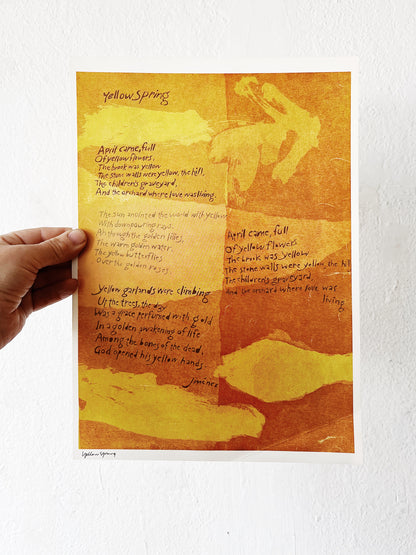 Yellow Spring
April came, full
Of yellow flowers.
The brook was yellow
The stone walls were yellow, the hill,
The children's graveyard,
And the orchard where love was living.
The sun anointed the world with yellow
With downpouring rays:
Ah through the golden lilies,
The warm golden water.
The yellow butterflies
Over the golden roses.
Yellow garlands were climbing
Up the trees, the day
Was a grace perfumed with gold
In a golden awakening of life
Among the bones of the dead,
God opened his yellow hands.
Jimenez
April came, full
Of yellow flowers
The brook was yellow
The stone walls were yellow the hill
The children's graveyard,
And the orchard where love was
living
Yellow Spring